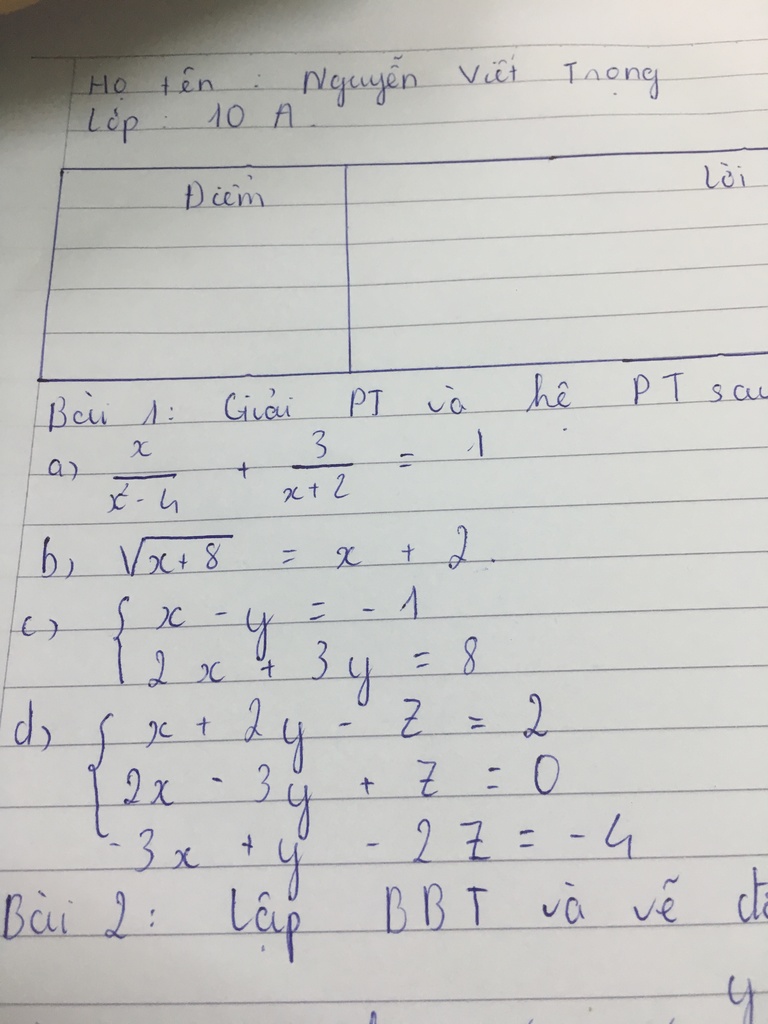 Họ tên : Nguyễn Viết Trọng
Lớp : 10 A.
Điểm Lời
Bài 1: Giải PT và hệ PT sau
a) x/(x² - 4) + 3/(x + 2) = 1
b) √(x + 8) = x + 2.
c) { x - y = - 1
2x + 3y = 8
d) { x + 2y - z = 2
2x - 3y + z = 0
-3x + y - 2z = -4
Bài 2: Lập BBT và vẽ
y